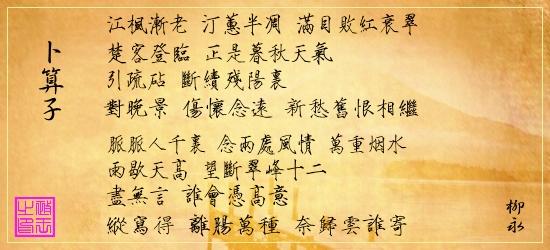 卜算子
江楓漸老 汀蕙半凋 滿目敗紅衰翠
楚客登臨 正是暮秋天氣
引疏砧 斷續殘陽裏
對晚景 傷懷念遠 新愁舊恨相繼
脈脈人千裏 念兩處風情 萬重烟水
雨歇天高 望斷翠峰十二
盡無言 誰會憑高意
縱寫得 離腸萬種 奈歸雲誰寄
柳永